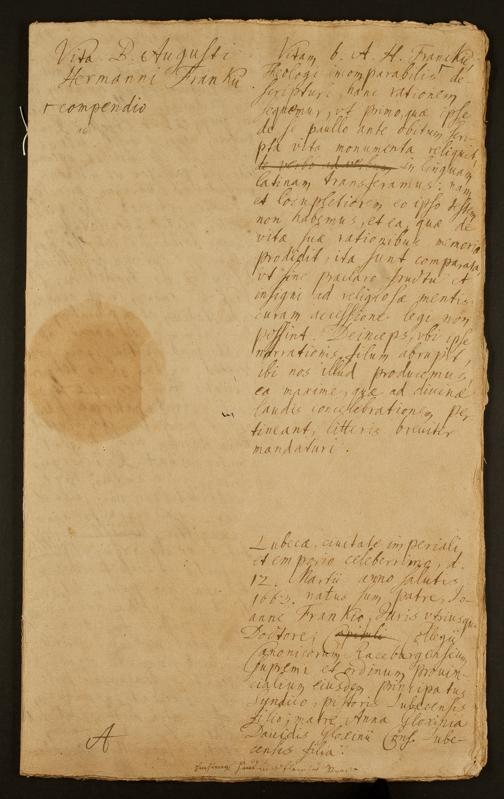 Vita B. Augusti
Hermanni Frankii
compendio
Vitam b. A. H. Franckii,
Theologi incomparabilis de-
scripturi hanc rationem
sequemur, vt primo, quæ ipse
de se paullo ante obitum scri-
pta vitæ monumenta reliquit,
de verbo ad verbum in linguam
latinam transferamus: nam
et locupletiorem eo ipso testem
non habemus, et ea, quæ de
vitæ suæ rationibus memoriæ
prodidit, ita sunt comparata,
vt sine præclaro fructu et
insigni ad religiosæ mentis
curam accessione legi non
possint. Deinceps, vbi ipse
narrationis filum abrupit,
ibi nos illud producemus,
ea maxime, quæ ad divinæ
laudis concelebrationem per-
tineant, litteris breviter
mandaturi.
Lubecæ, ciuitate imperiali,
et emporio celeberrimo, d.
12. Martii anno salutis
1663. natus sum patre, Jo-
anne Frankio, Juris vtriusque
Doctore, Capituli collegii
Canonicorum Raceburgensium
supremi et ordinum provin-
cialium eiusdem principatus
syndico, pistoris Lubecensis
filio; matre, Anna Gloxinia
Dauidis Gloxinii Cons. Lube-
censis filia.
A